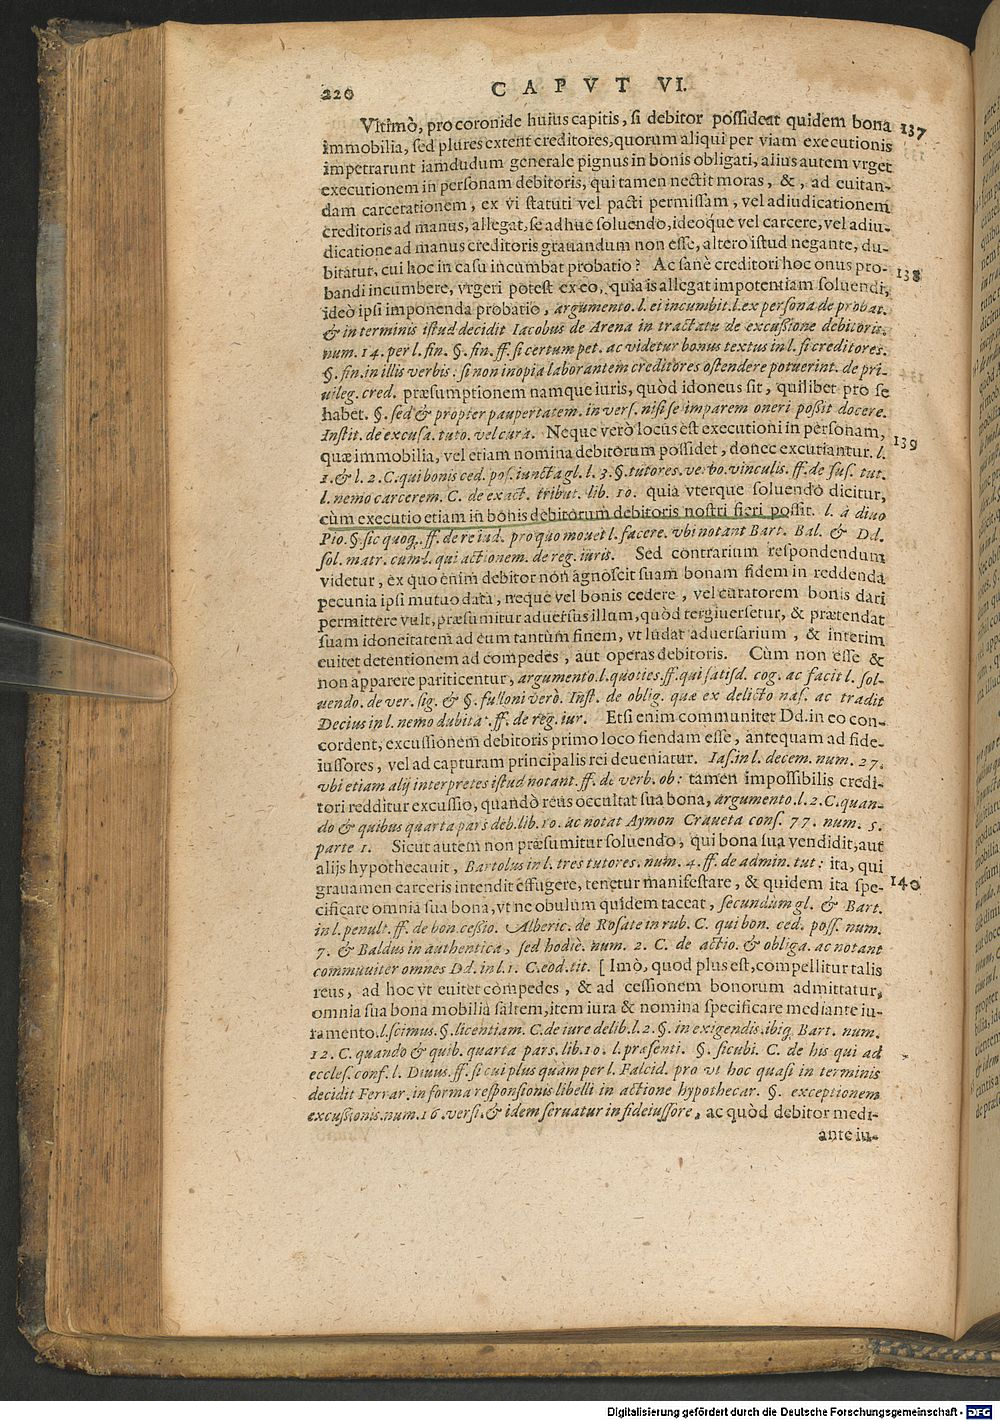 220 CAPVT VI.
Vltimò, pro coronide huius capitis, si debitor possideat quidem bona 137
immobilia, sed plures extent creditores, quorum aliqui per viam executionis
impetrarunt iamdudum generale pignus in bonis obligati, alius autem vrget
executionem in personam debitoris, qui tamen nectit moras, &, ad euitan-
dam carcerationem, ex vi statuti vel pacti permissam, vel adiudicationem
creditoris ad manus, allegat, se adhuc soluendo, ideoque vel carcere, vel adiu-
dicatione ad manus creditoris grauandum non esse, altero istud negante, du-
bitatur, cui hoc in casu incumbat probatio? Ac sanè creditori hoc onus pro- 138
bandi incumbere, vrgeri potest ex eo, quia is allegat impotentiam soluendi,
ideo ipsi imponenda probatio, argumento. l. ei incumbit. l. ex persona de probat.
& in terminis istud decidit Iacobus de Arena in tractatu de excussione debitoris.
num. 14. per l. fin. §. fin. ff. si certum pet. ac videtur bonus textus in l. si creditores.
§. fin. in illis verbis: si non inopia laborantem creditores ostendere potuerint. de pri-
uileg. cred. præsumptionem namque iuris, quòd idoneus sit, quilibet pro se
habet. §. sed & propter paupertatem. in vers. nisi se imparem oneri possit docere.
Instit. de excusa. tuto. vel cura. Neque verò locus est executioni in personam, 139
quæ immobilia, vel etiam nomina debitorum possidet, donec excutiantur. l.
1. & l. 2. C. qui bonis ced. pos. iuncta gl. l. 3. §. tutores. verbo. vinculis. ff. de sus. tut.
l. nemo carcerem. C. de exact. tribut. lib. 10. quia vterque soluendo dicitur,
cùm executio etiam in bonis debitorum debitoris nostri fieri possit. l. à diuo
Pio. §. sic quoq. ff. de re iud. pro quo mouet l. facere. vbi notant Bart. Bal. & Dd.
sol. matr. cum l. qui actionem. de reg. iuris. Sed contrarium respondendum
videtur, ex quo enim debitor non agnoscit suam bonam fidem in reddenda
pecunia ipsi mutuo data, neque vel bonis cedere, vel curatorem bonis dari
permittere vult, præsumitur aduersus illum, quòd tergiuersetur, & prætendat
suam idoneitatem ad eum tantùm finem, vt ludat aduersarium, & interim
euitet detentionem ad compedes, aut operas debitoris. Cùm non esse &
non apparere pariticentur, argumento. l. quoties. ff. qui satisd. cog. ac facit l. sol-
uendo. de ver. sig. & §. fulloni verò. Inst. de oblig. quæ ex delicto nas. ac tradit
Decius in l. nemo dubitat. ff. de reg. iur. Etsi enim communiter Dd. in eo con-
cordent, excussionem debitoris primo loco fiendam esse, antequam ad fide-
iussores, vel ad capturam principalis rei deueniatur. Ias. in l. decem. num. 27.
vbi etiam alij interpretes istud notant. ff. de verb. ob: tamen impossibilis credi-
tori redditur excussio, quandò reus occultat sua bona, argumento. l. 2. C. quan-
do & quibus quarta pars deb. lib. 10. ac notat Aymon Craueta cons. 77. num. 5.
parte 1. Sicut autem non præsumitur soluendo, qui bona sua vendidit, aut
alijs hypothecauit, Bartolus in l. tres tutores. num. 4. ff. de admin. tut: ita, qui
grauamen carceris intendit effugere, tenetur manifestare, & quidem ita spe- 140
cificare omnia sua bona, vt ne obulum quidem taceat, secundum gl. & Bart.
in l. penult. ff. de bon. cessio. Alberic. de Rosate in rub. C. qui bon. ced. poss. num.
7. & Baldus in authentica, sed hodiè. num. 2. C. de actio. & obliga. ac notant
commuuiter omnes Dd. in l. 1. C. eod. tit. [ Imò, quod plus est, compellitur talis
reus, ad hoc vt euitet compedes, & ad cessionem bonorum admittatur,
omnia sua bona mobilia saltem, item iura & nomina specificare mediante iu-
ramento. l. scimus. §. licentiam. C. de iure delib. l. 2. §. in exigendis. ibiq. Bart. num.
12. C. quando & quib. quarta pars. lib. 10. l. præsenti. §. sicubi. C. de his qui ad
eccles. conf. l. Diuus. ff. si cui plus quàm per l. Falcid. pro vt hoc quasi in terminis
decidit Ferrar. in forma responsionis libelli in actione hypothecar. §. exceptionem
excussionis. num. 16. versi. & idem seruatur in fideiussore, ac quòd debitor medi-
ante iu-
Digitalisierung gefördert durch die Deutsche Forschungsgemeinschaft - DFG